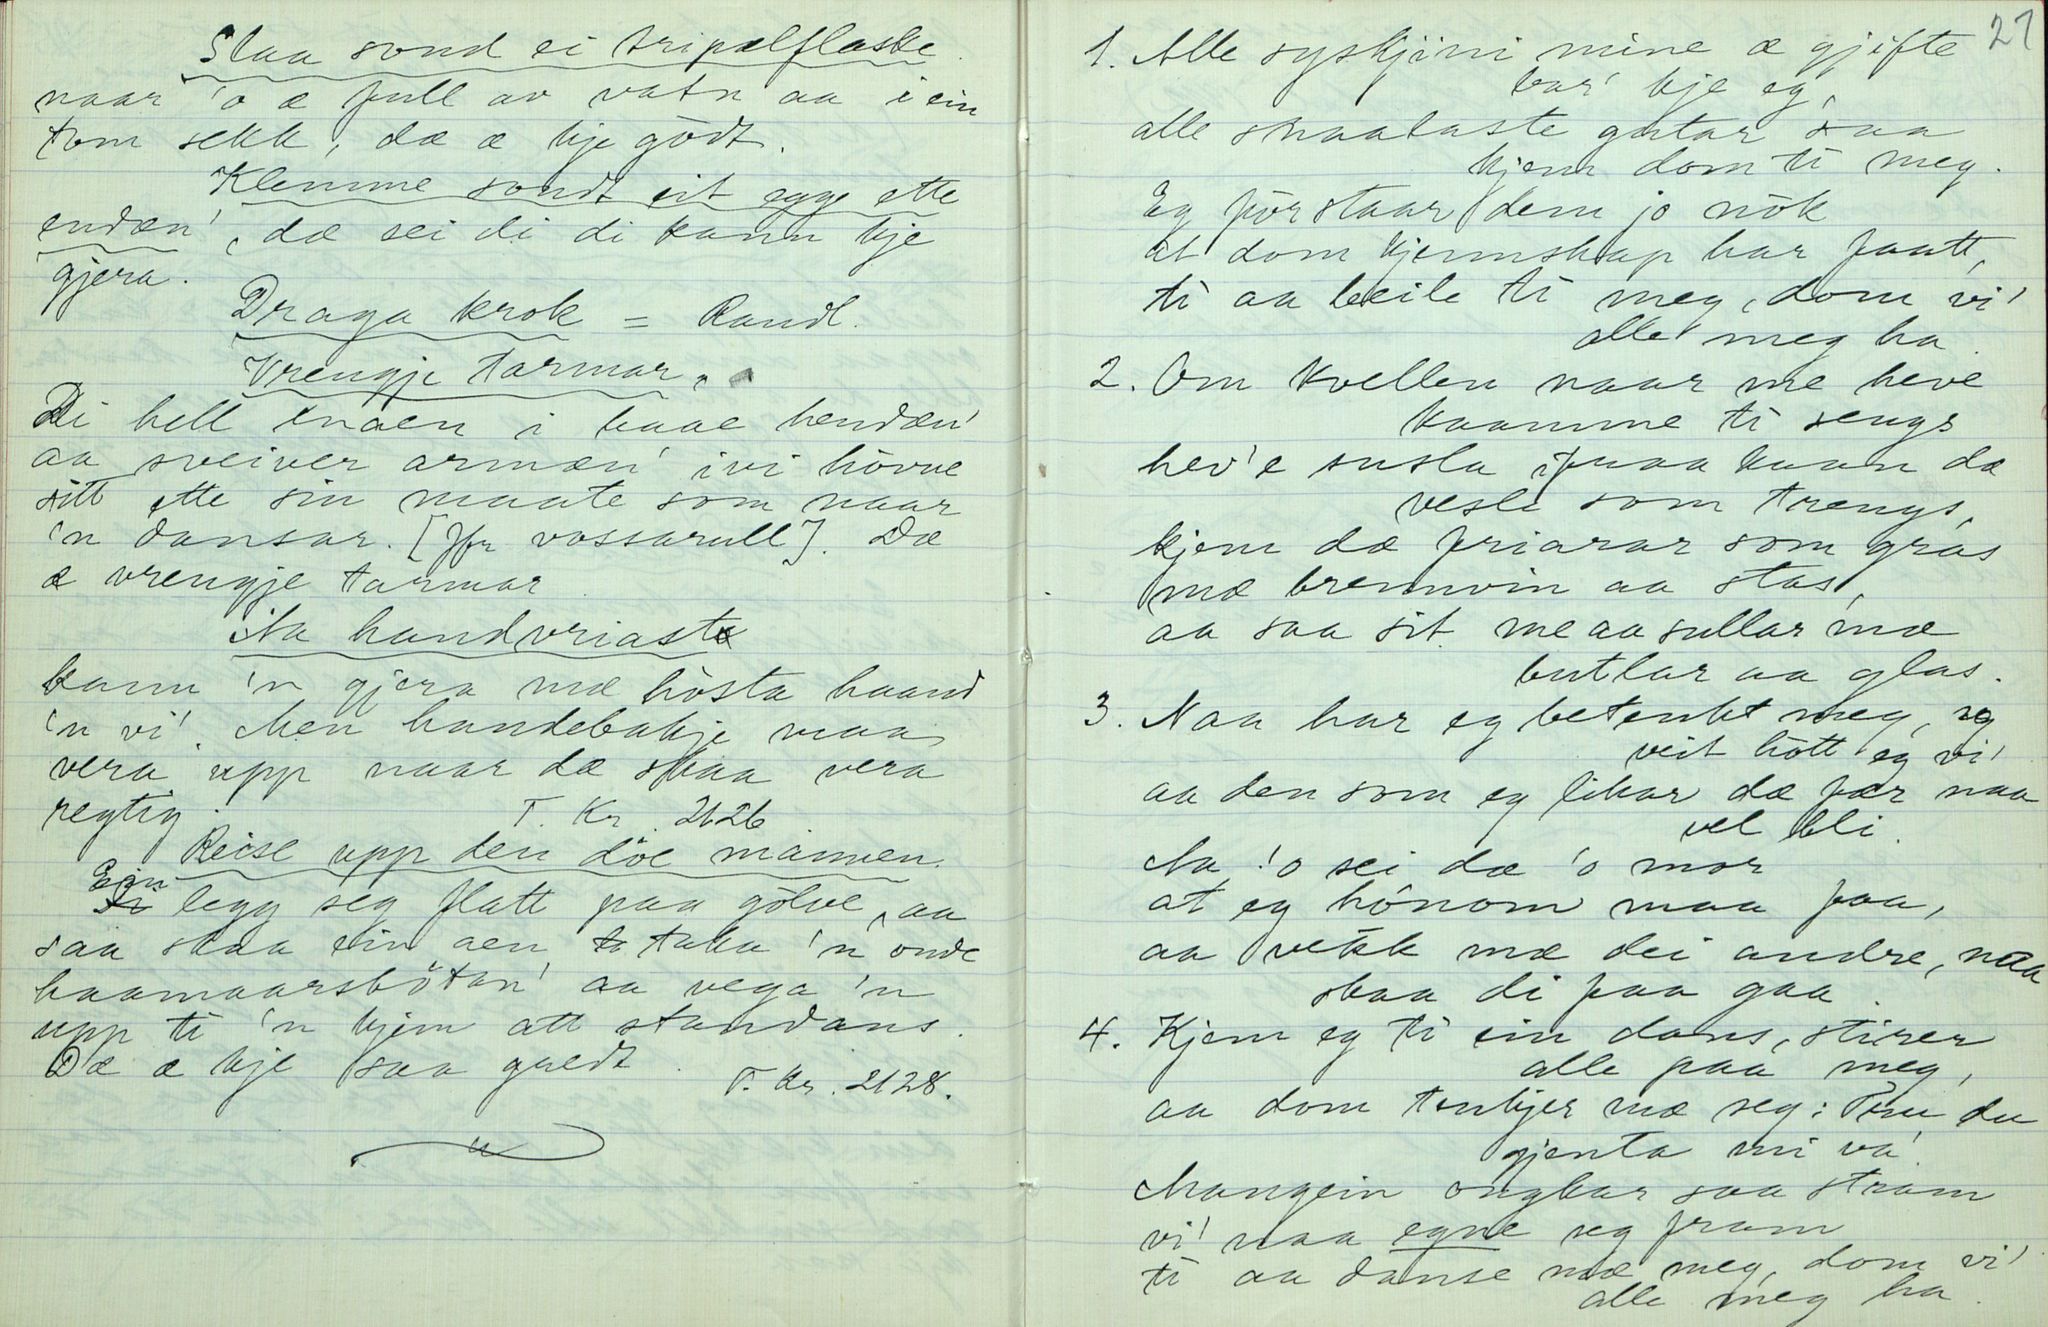 Slaa sond ei tripælflaske
naar 'o æ full av vatn aa i ein
tom sekk, dæ æ kje gödt.
Klemme sondt eit egge ette
endæn', dæ sei di di kann kje
gjera.
Draga krok = Randl.
Vrengje tarmar.
Di hell inaen i baae hendæn'
aa sveiver armæn' ivi hövue
sitt ette sin maate som naar
'n dansar. [Jfr vossarull]. Dæ
æ vrengje tarmar
Na handvriast
kann 'n gjera mæ hösta haand
'n vi'. Men handebakje maa
vera upp naar dæ skaa vera
regtig. T. Kr. 2126
Reise upp den döe mannen.
Ein legg seg flatt paa gölve, aa
saa skaa ein aen taka 'n onde
haamaarsbötan' aa vega 'n
upp ti 'n kjem att standans.
Dæ æ kje saa gredt. T. Kr. 2128.
27
1. Alle syskjini mine æ gjifte
bar' kje eg,
alle snaalaste gutar saa
kjem dom ti meg.
Eg förstaar dem jo nök
at dom kjennskap har faatt,
ti aa beile ti meg, dom vi'
alle meg ha.
2. Om kvellen naar me heve
kaamme ti sengs
hev'e susla ifraa kaan dæ
vesle som trengs,
kjem dæ friarar som gras
mæ brennvin aa stas,
aa saa sit me aa sullar mæ
butlar aa glas.
3. Naa har eg betenkt meg, eg
veit hött eg vi'
aa den som eg likar dæ fær naa
vel bli.
Na 'o sei dæ 'o mor
at eg hönom maa faa,
aa vekk mæ dei andre, naa
skaa di faa gaa.
4. Kjem eg ti ein dans, stirer
alle paa meg,
aa dom tenkjer mæ seg: Fru du
gjenta mi va'.
Mangein ongkar saa stram
vi' naa egne seg fram
ti aa danse mæ meg, dom vi'
alle meg ha.